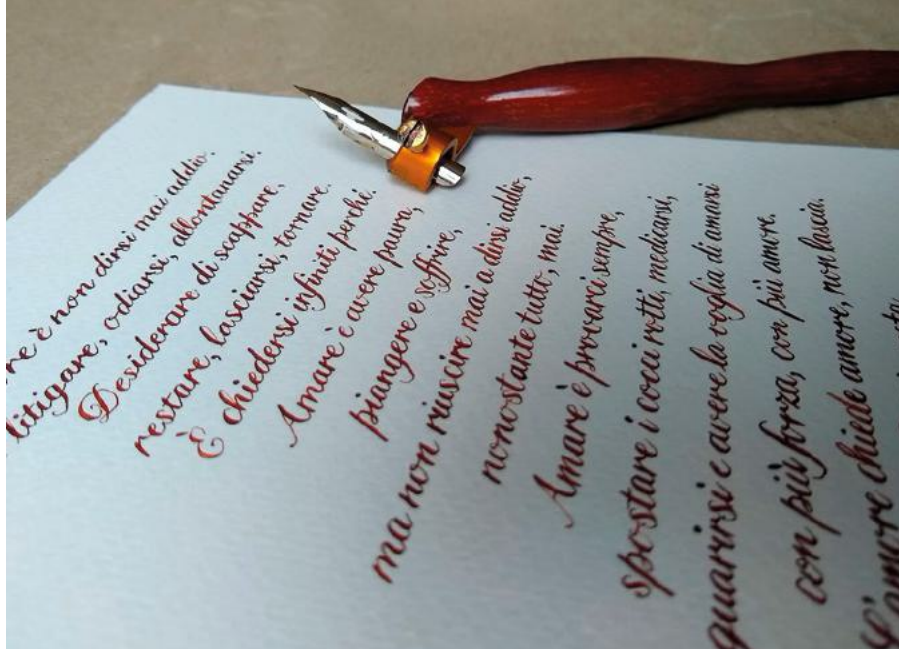 è non dirsi mai addio.
litigare, odiarsi, allontanarsi.
Desiderare di scappare,
restare, lasciarsi, tornare.
È chiedersi infiniti perché.
Amare è avere paura,
piangere e soffrire,
ma non riuscire mai a dirsi addio,
nonostante tutto, mai.
Amare è provarci sempre,
spostare i cocci rotti, medicarsi,
guarirsi e avere la voglia di amarsi
con più forza, con più amore.
L'amore chiede amore, non lascia.